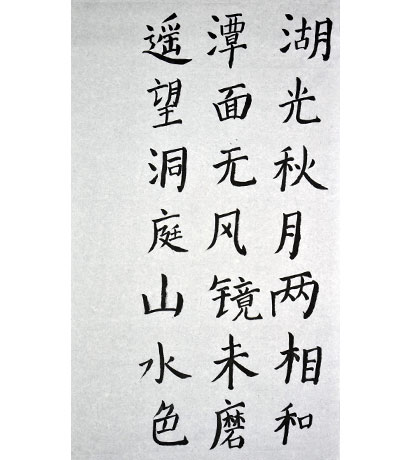 湖光秋月两相和
潭面无风镜未磨
遥望洞庭山水色